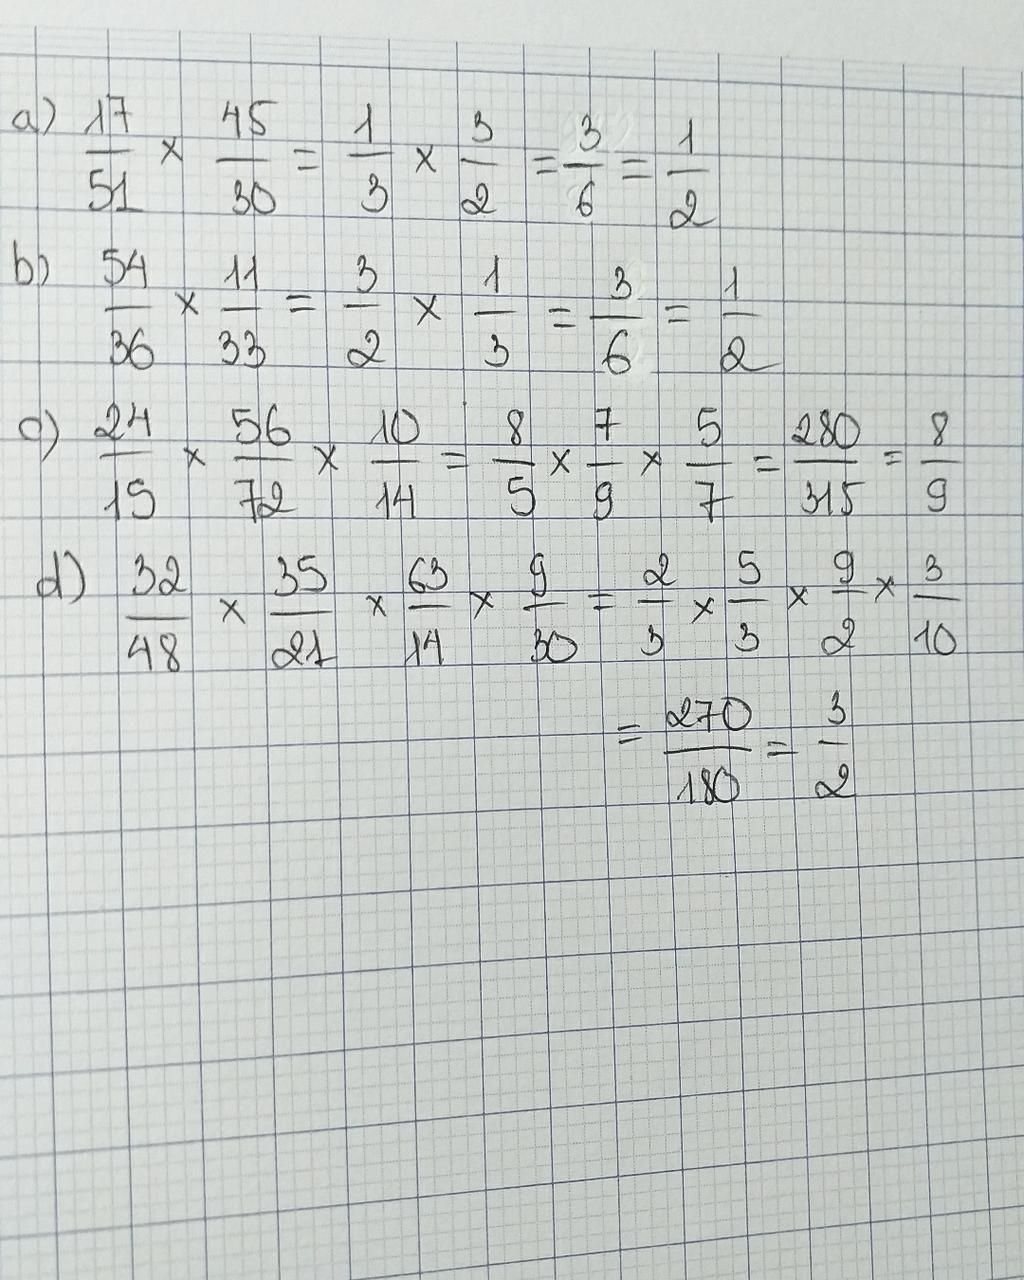 a) 17/51 × 45/30 = 1/3 × 3/2 = 3/6 = 1/2
b) 54/36 × 11/33 = 3/2 × 1/3 = 3/6 = 1/2
c) 24/15 × 56/72 × 10/14 = 8/5 × 7/9 × 5/7 = 280/315 = 8/9
d) 32/48 × 35/21 × 63/14 × 9/30 = 2/3 × 5/3 × 9/2 × 3/10
= 270/180 = 3/2